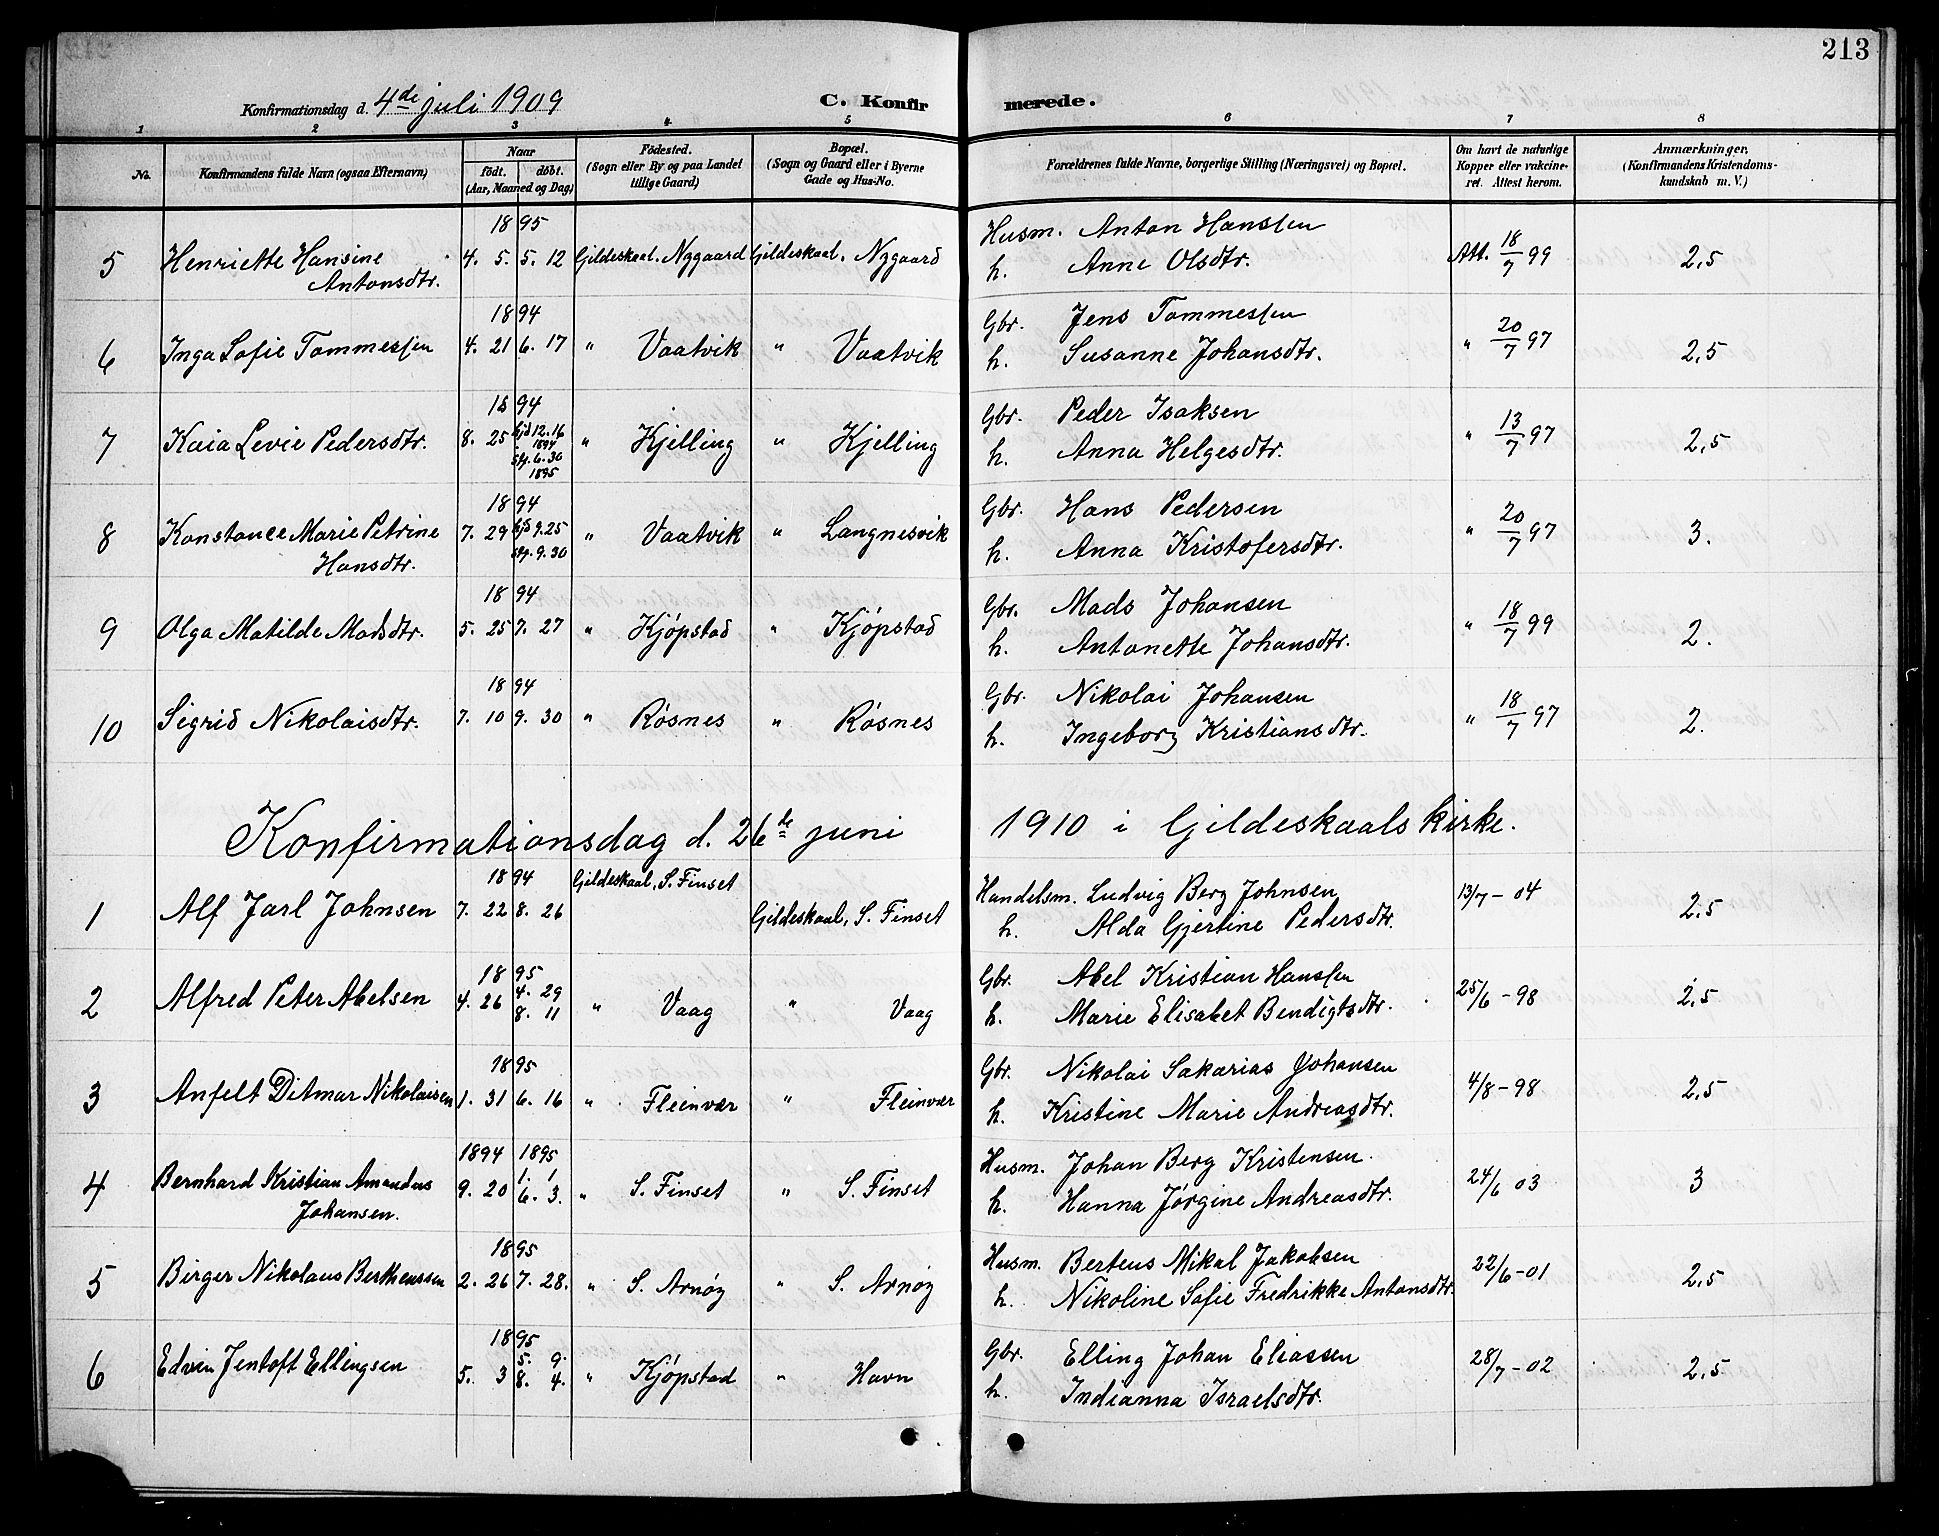 213
Konfirmationsdag d. 4de juli 1909 C. Konfirmerede.
1 2 3 4 5 6 7 8
No. Konfirmandens fulde Navn (ogsaa Efternavn) Naar født. døbt. (Aar, Maaned og Dag) Fødested. (Sogn eller By og paa Landet tillige Gaard) Bopæl. (Sogn og Gaard eller i Byerne Gade og Hus-No. Forældrenes fulde Navne, borgerlige Stilling (Næringsvei) og Bopæl. Om havt de naturlige Kopper eller vakcineret. Attest herom. Anmærkninger. (Konfirmandens Kristendomskundskab m. V.)
1895
5 Henriette Hansine 4. 5. 5. 12 Gildeskaal. Nygaard Gildeskaal. Nygaard Husm. Anton Hanssen Att. 18/7 99 2,5
Antonsdtr. h. Anne Olsdtr.
1894
6 Inga Sofie Tommessen 4. 21 6. 17 " Vaatvik " Vaatvik Gbr. Jens Tommessen " 20/7 97 2,5
h. Susanne Johansdtr.
1894
7 Kaia Levie Pedersdtr. 8. 25 hjd 12.16 1894 stf. 6.30 1895 " Kjelling " Kjelling Gbr. Peder Isaksen " 13/7 97 2,5
h. Anna Helgesdtr.
1894
8 Konstance Marie Petrine 7. 29 hjd 9.25 stf. 9.30 " Vaatvik " Langnesvik Gbr. Hans Pedersen " 20/7 97 3.
Hansdtr. h. Anna Kristofersdtr.
1894
9 Olga Matilde Madsdtr. 5. 25 7. 27 " Kjøpstad " Kjøpstad Gbr. Mads Johansen " 18/7 99 2.
h. Antonette Johansdtr.
1894
10 Sigrid Nikolaisdtr. 7. 10 9. 30 " Røsnes " Røsnes Gbr. Nikolai Johansen " 18/7 97 2.
h. Ingeborg Kristiansdtr.
Konfirmationsdag d. 26de juni 1910 i Gildeskaals kirke.
1894 Gildeskaal, S. Finset
1 Alf Jarl Johnsen 7. 22 8. 26 Gildeskaal, S. Finset Handelsm. Ludvig Berg Johnsen 13/7 - 04 2,5
h. Alda Gjertine Pedersdtr.
1895
2 Alfred Peter Abelsen 4. 26 4. 29 8. 11 " Vaag " Vaag Gbr. Abel Kristian Hanssen 25/6 - 98 2,5
h. Marie Elisabet Bendigtsdtr.
1895
3 Anfelt Ditmar Nikolaisen 1. 31 6. 16 " Fleinvær " Fleinvær Gbr. Nikolai Sakarias Johansen 4/8 - 98 2,5
h. Kristine Marie Andreasdtr.
1894 1895
4 Bernhard Kristian Amandus 9. 20 1. 1 6. 3. " S. Finset " S. Finset Husm. Johan Berg Kristensen 24/6 03 3
Johansen. h. Hanna Jørgine Andreasdtr.
1895
5 Birger Nikolaus Bertheussen 2. 26 7. 28. " S. Arnøy " S. Arnøy Husm. Berteus Mikal Jakobsen 22/6 - 01 2,5
h. Nikoline Sofie Fredrikke Antonsdtr.
1895
6 Edvin Jentoft Ellingsen 5. 3 5. 9. 8. 4. " Kjøpstad " Havn Gbr. Elling Johan Eliassen 28/7 - 02 2,5
h. Indianna Israelsdtr.